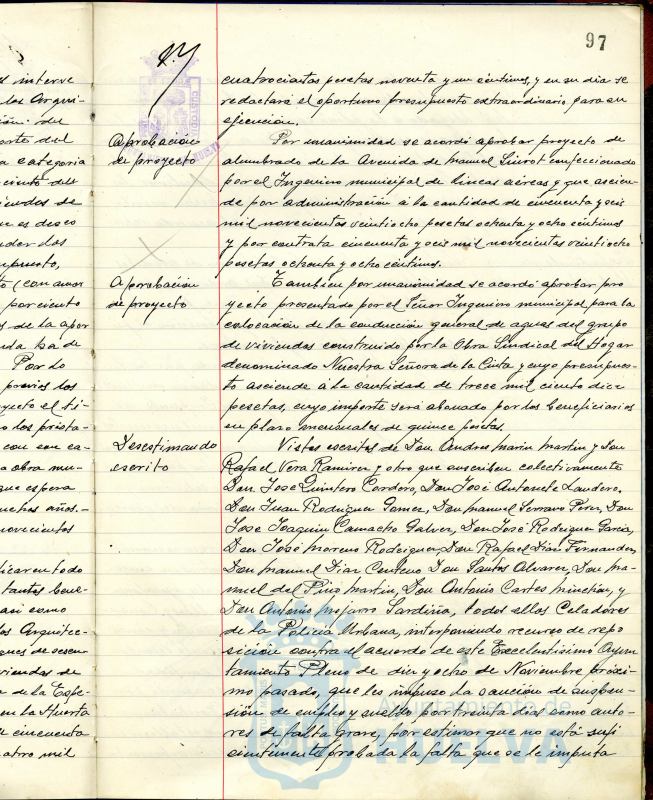 97
cuatrocientas pesetas noventa y un céntimos, y en su dia se
redactará el oportuno presupuesto extraordinario para su
ejecución.
Aprobación
de proyecto
Por unanimidad se acordó aprobar proyecto de
alumbrado de la Avenida de Manuel Siurot confeccionado
por el Ingeniero municipal de lineas aéreas y que ascien-
de por administración á la cantidad de cincuenta y seis
mil novecientas veintiocho pesetas ochenta y ocho céntimos
y por contrata cincuenta y seis mil novecientas veintiocho
pesetas ochenta y ocho céntimos.
Aprobación
de proyecto
Tambien por unanimidad se acordó aprobar pro
yecto presentado por el Señor Ingeniero municipal para la
colocación de la conducción general de aguas del grupo
de viviendas construido por la Obra Sindical del Hogar
denominado Nuestra Señora de la Cinta y cuyo presupues-
to asciende á la cantidad de trece mil ciento diez
pesetas, cuyo importe será abonado por los beneficiarios
en plazo mensuales de quince pesetas.
Desestimando
escrito
Vistos escritos de Don Andres Marin Martin y Don
Rafael Vera Ramirez y otro que suscriben colectivamente
Don Jose Quintero Cordero, Don José Antonete Landero,
Don Juan Rodriguez Gomez, Don Manuel Serrano Perez, Don
Jose Joaquin Camacho Galvez, Don José Rodriguez Garcia,
Don José Moreno Rodriguez, Don Rafael Dian Fernandez,
Don Manuel Diaz Centeno Don Santos Alvarez, Don Ma-
nuel del Pino Martin, Don Antonio Cartes Minchon, y
Don Antonio Mojarro Sardiña, todos ellos Celadores
de la Policia Urbana, interponiendo recurso de repo
sición contra el acuerdo de este Excelentisimo Ayun
tamiento Pleno de diez y ocho de Noviembre próxi-
mo pasado, que les impuso la sanción de suspen-
sión de empleo y sueldo por treinta dias como auto-
res de falta grave, por estimar que no está sufi
cientemente probada la falta que se le imputa
Ayuntamiento de
HUELVA